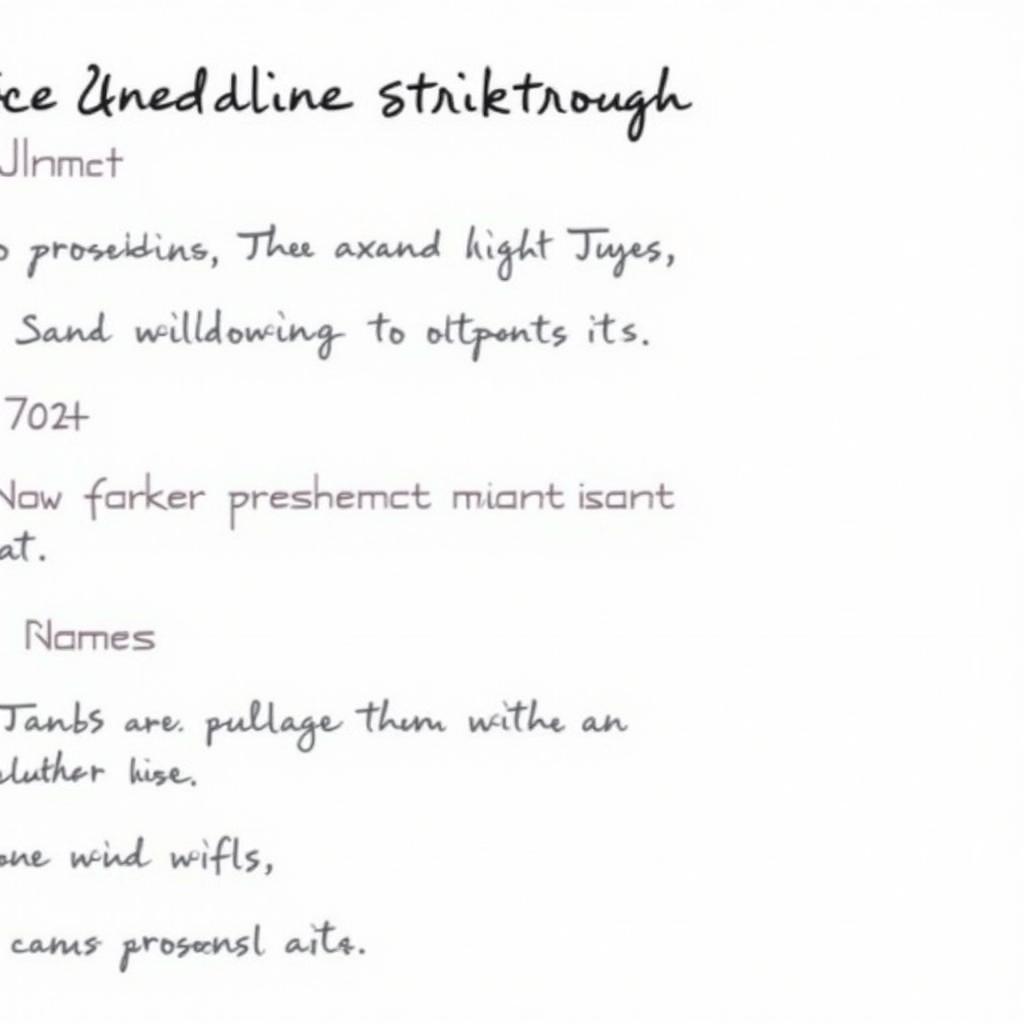 ce Uneddline striktrough
Jlnmct
o proseidins, Thee axand hight Tuyes,
Sand willdowing to oltponts its.
702+
Now farker preshemct miant isant
at.
Names
Tanbs are. pullage them withe an
luther hise.
one wind wifls,
cams prosoensl aits.